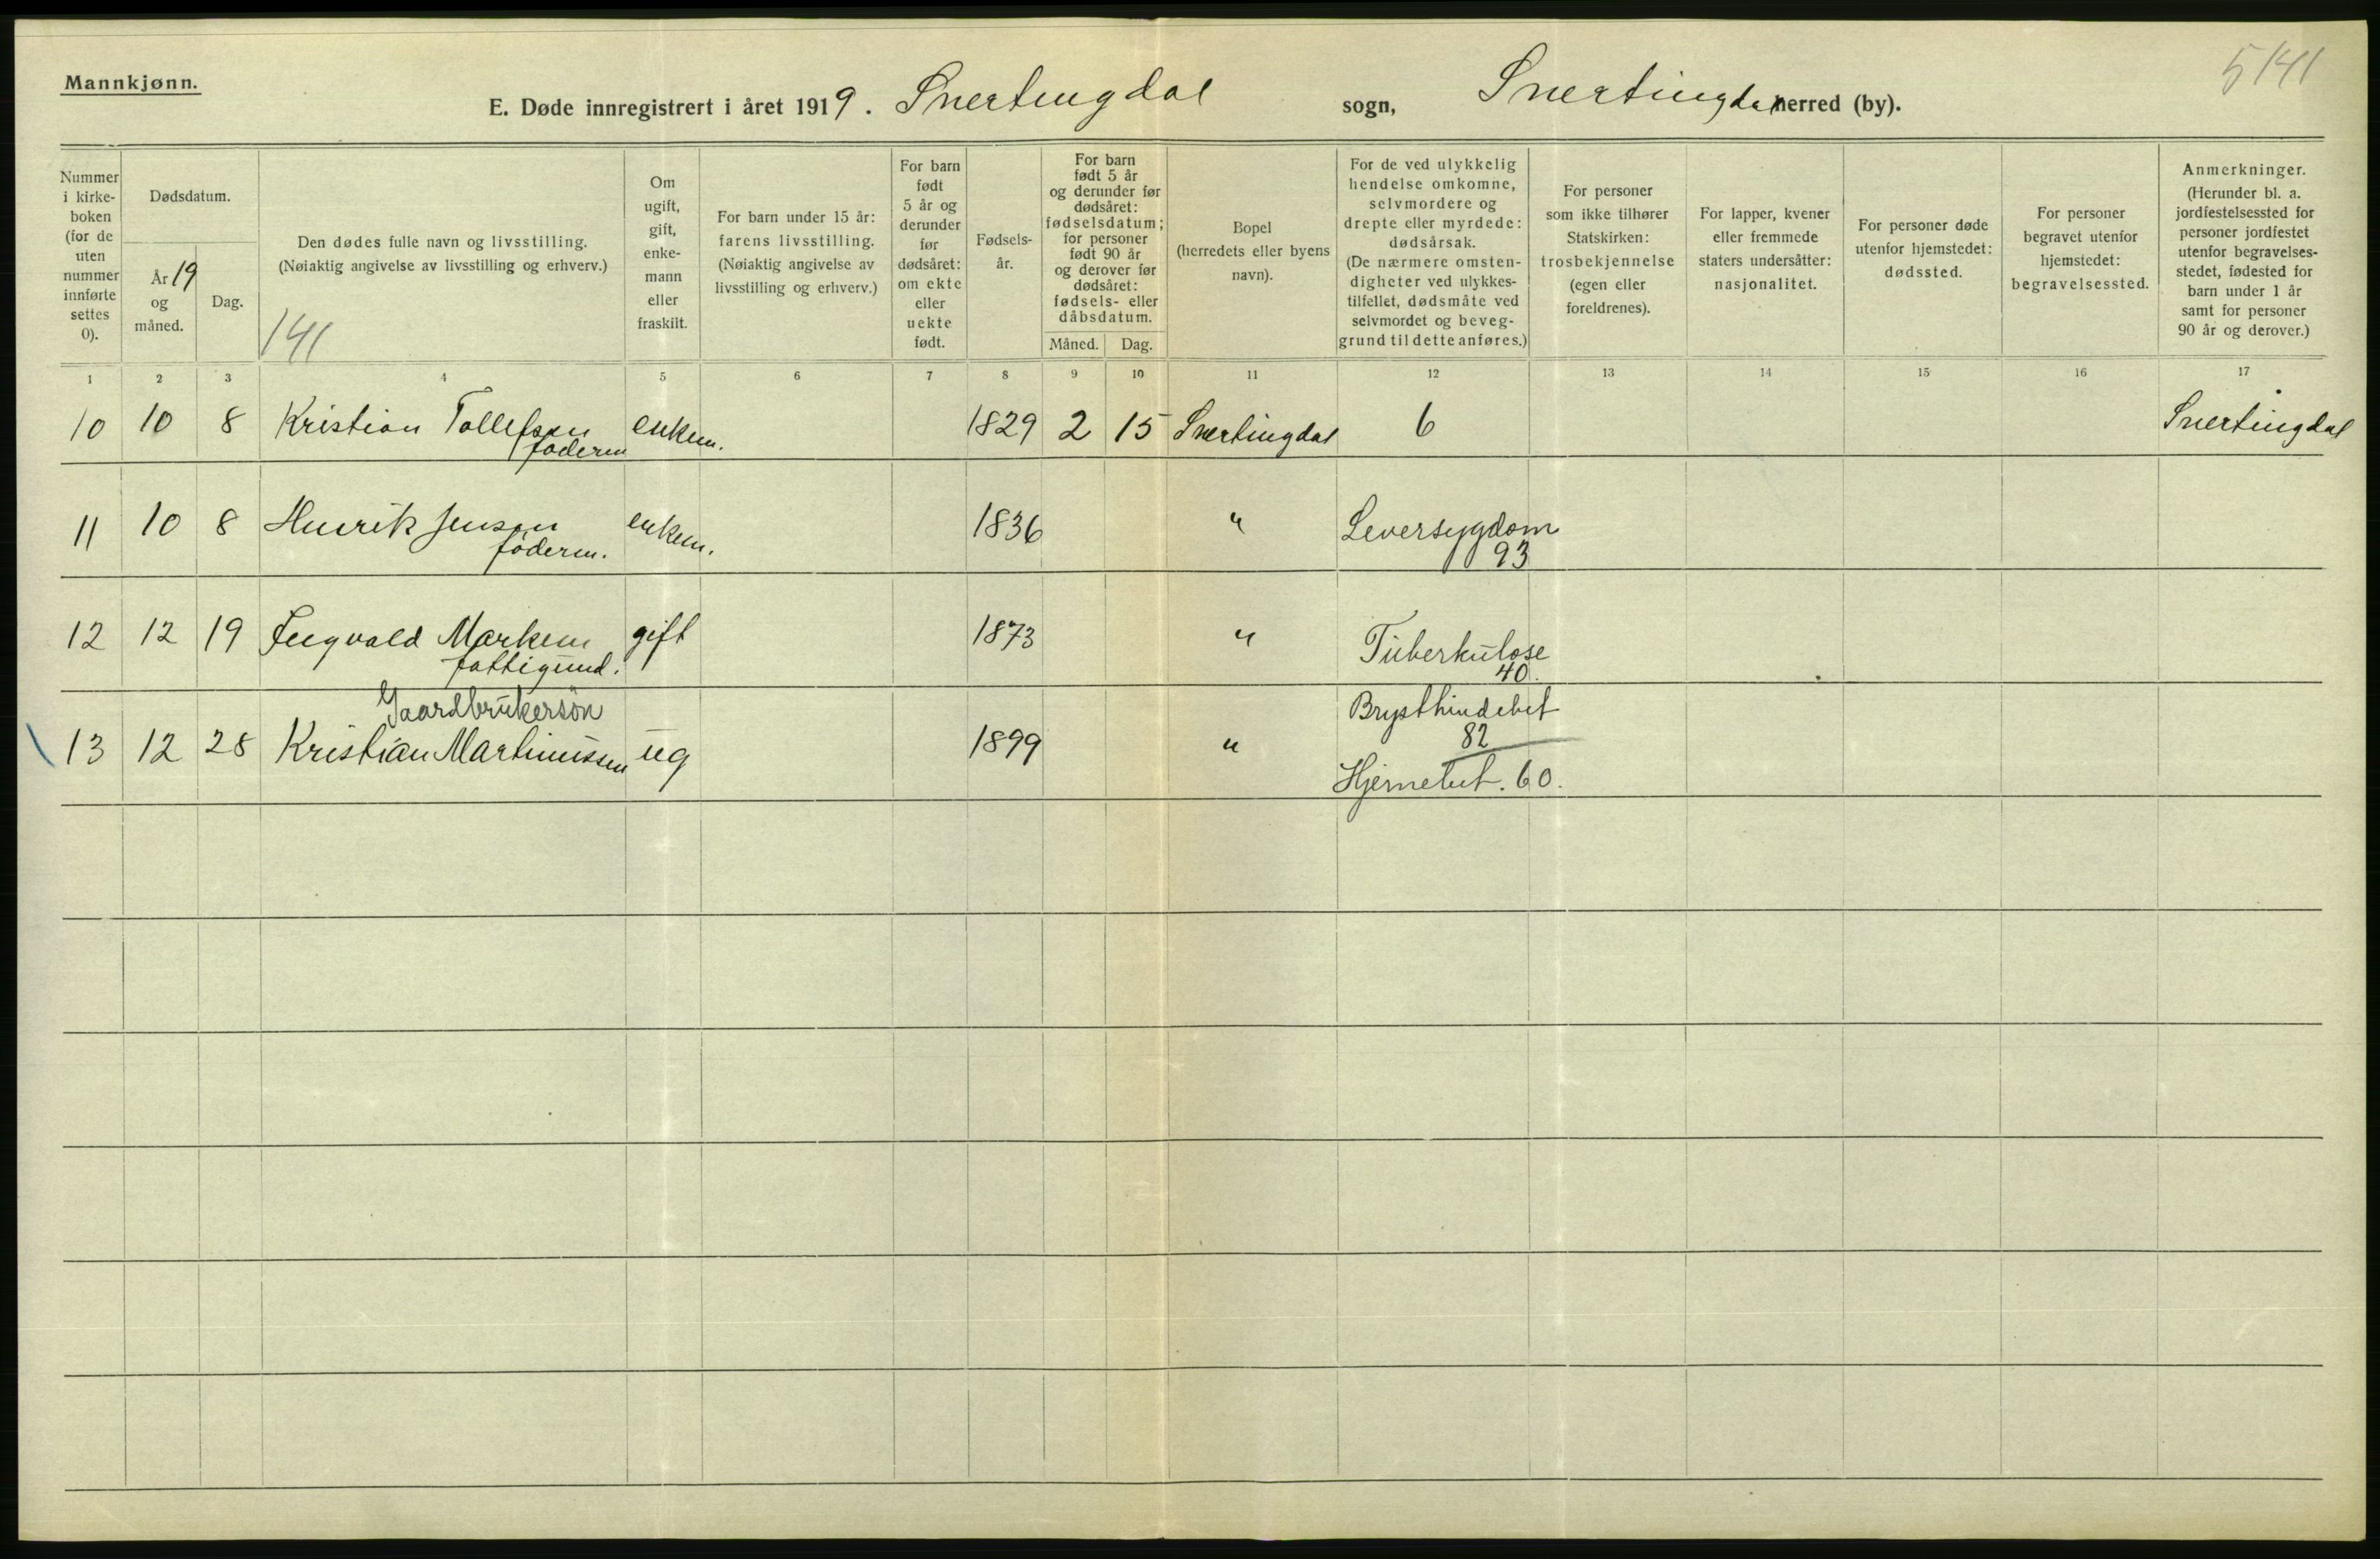 Mannkjønn.
5141
E. Døde innregistrert i året 1919. Snertingdal sogn, Snertingdal herred (by).
Nummer i kirke- boken (for de uten nummer innførte settes 0).
Dødsdatum.
År 19 og måned.
Dag.
Den dødes fulle navn og livsstilling.
(Nøiaktig angivelse av livsstilling og erhverv.)
141
Om ugift, gift, enke- mann eller fraskilt.
For barn under 15 år: farens livsstilling. (Nøiaktig angivelse av livsstilling og erhverv.)
For barn født 5 år og derunder før dødsåret: om ekte eller uekte født.
Fødsels- år.
For barn født 5 år og derunder før dødsåret: fødselsdatum; for personer født 90 år og derover før dødsåret: fødsels- eller dåbsdatum.
Måned.
Dag.
Bopel (herredets eller byens navn).
For de ved ulykkelig hendelse omkomne, selvmordere og drepte eller myrdede: dødsårsak. (De nærmere omsten- digheter ved ulykkes- tilfellet, dødsmåte ved selvmordet og beveg- grund til dette anføres.)
For personer som ikke tilhører Statskirken: trosbekjennelse (egen eller foreldrenes).
For lapper, kvener eller fremmede staters undersåtter: nasjonalitet.
For personer døde utenfor hjemstedet: dødssted.
For personer begravet utenfor hjemstedet: begravelsessted.
Anmerkninger. (Herunder bl. a. jordfestelsessted for personer jordfestet utenfor begravelses- stedet, fødested for barn under 1 år samt for personer 90 år og derover.)
1 2 3 4 5 6 7 8 9 10 11 12 13 14 15 16 17
10 10 8 Kristian Tollefsen enkem. 1829 2 15 Snertingdal 6 Snertingdal
föderm
11 10 8 Henrik Jensen enkem. 1836 " Leversygdom
föderm. 93
12 12 19 Ingvald Marken gift 1873 " Tuberkulose
fattigund. 40.
Gaardbrukersön Brysthindebet
82
13 12 28 Kristian Martinussen ug 1899 "
Hjernebet. 60.